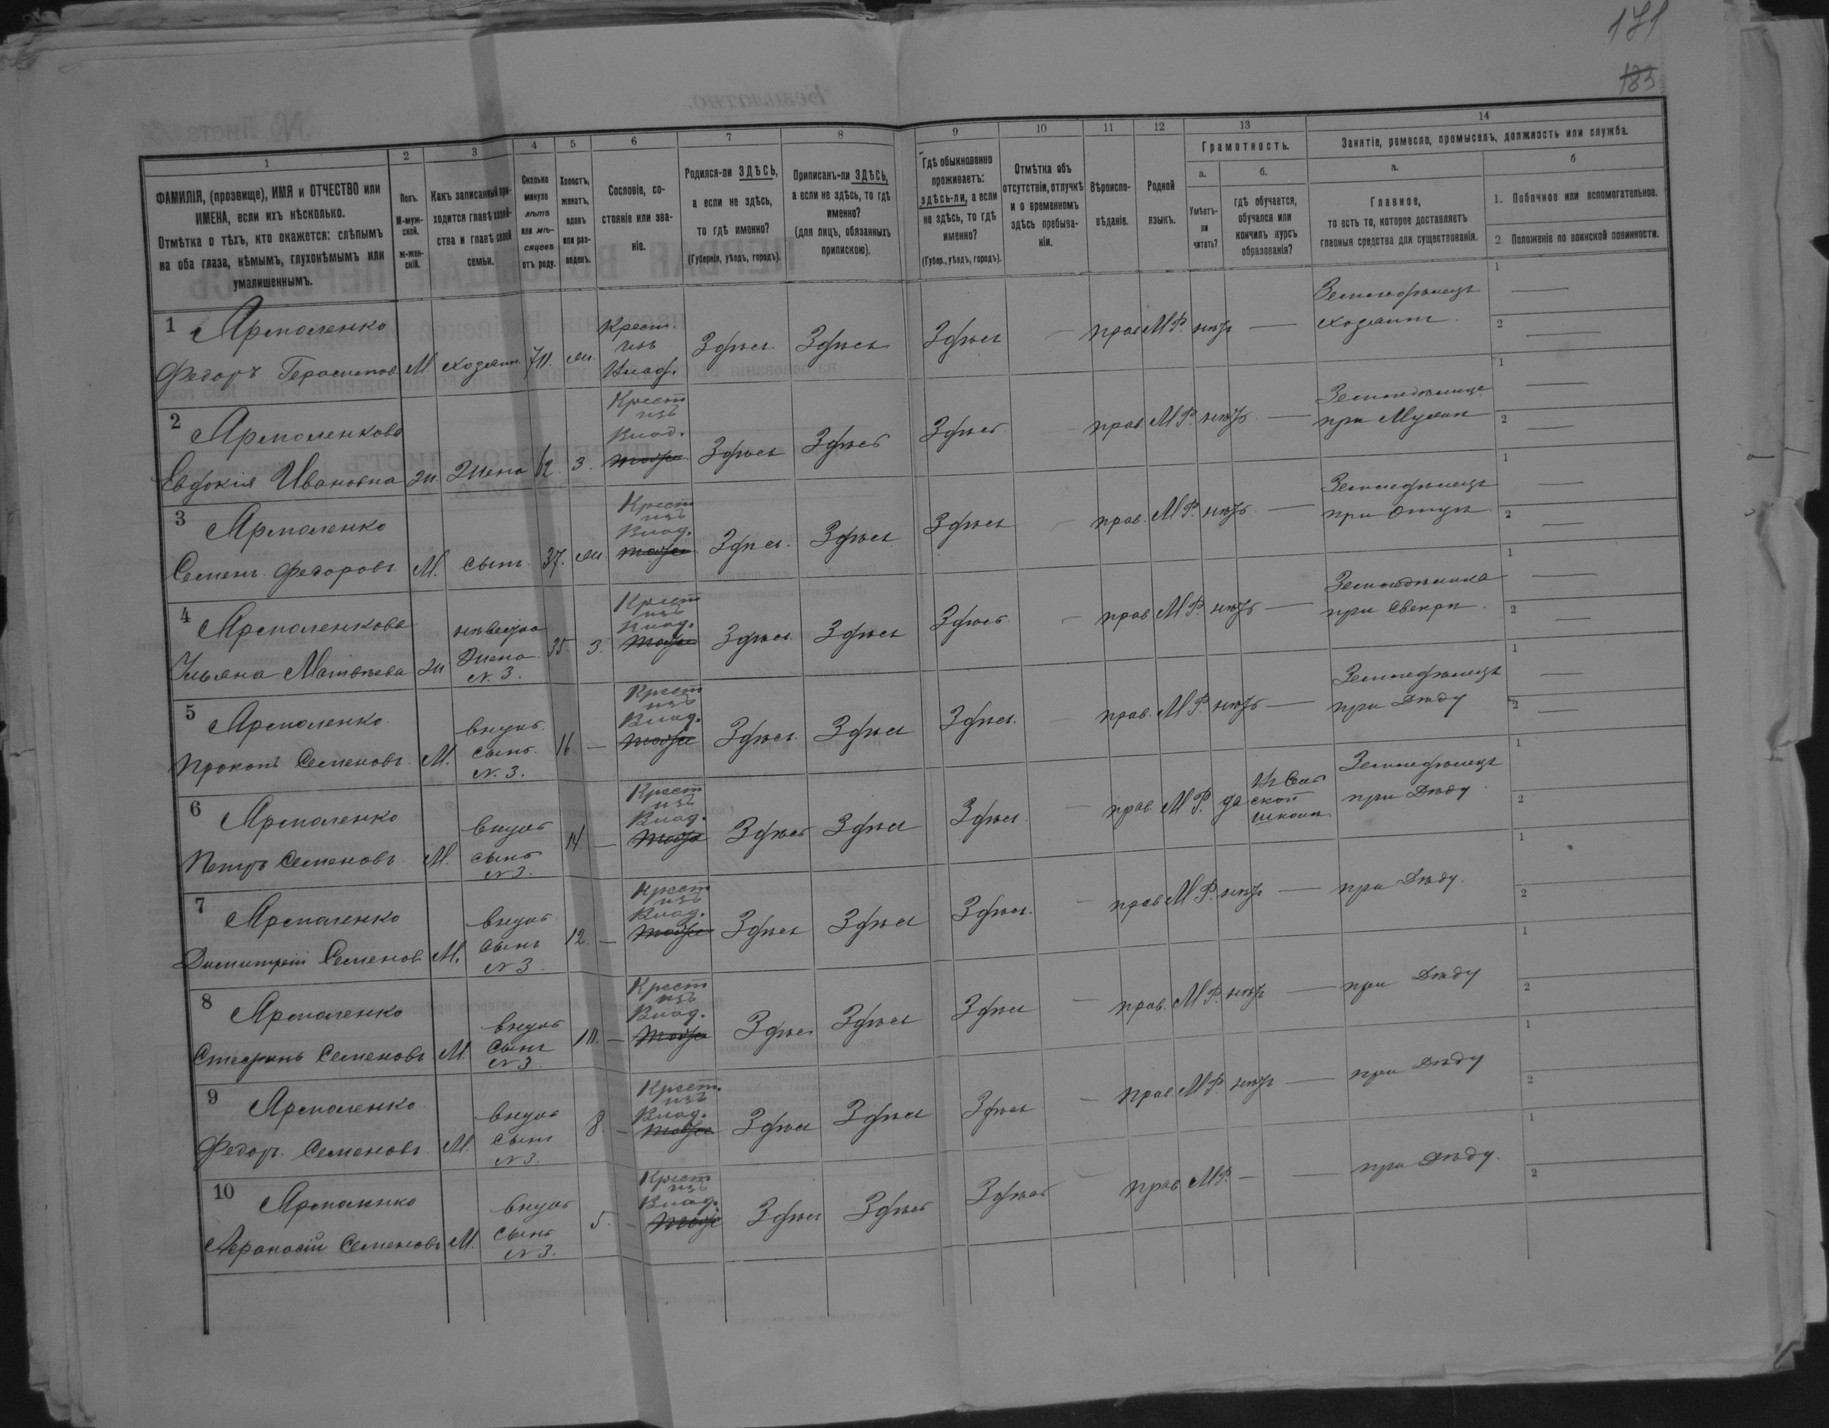 171
185
1 2 3 4 5 6 7 8 9 10 11 12 13 14
ФАМИЛІЯ, (прозвище), ИМЯ и ОТЧЕСТВО или ИМЕНА, если ихъ нѣсколько.
Отмѣтка о тѣхъ, кто окажется: слѣпымъ на оба глаза, нѣмымъ, глухонѣмымъ или умалишеннымъ.
Полъ.
М-муж-ской.
ж-жен-скій.
Какъ записанный при-ходится главѣ хозяй-ства и главѣ своей семьи.
Сколько минуло лѣтъ или мѣ-сяцевъ отъ роду.
Холостъ, женатъ, вдовъ или раз-веденъ.
Сословіе, со-стояніе или зва-ніе.
Родился-ли ЗДѢСЬ, а если не здѣсь, то гдѣ именно?
(Губернія, уѣздъ, городъ).
Приписанъ-ли ЗДѢСЬ, а если не здѣсь, то гдѣ именно?
(для лицъ, обязанныхъ припискою).
Гдѣ обыкновенно проживаетъ: здѣсь-ли, а если не здѣсь, то гдѣ именно?
(Губер., уѣздъ, городъ).
Отмѣтка объ отсутствіи, отлучкѣ и о временномъ здѣсь пребыва-ніи.
Вѣроиспо-вѣданіе.
Родной языкъ.
Грамотность.
а.
Умѣетъ-ли читать?
б.
гдѣ обучается, обучался или кончилъ курсъ образованія?
Занятіе, ремесло, промыселъ, должность или служба.
а.
Главное,
то есть то, которое доставляетъ главныя средства для существованія.
б
1. Побочное или вспомогательное.
2 Положеніе по воинской повинности.
1 Ярмоленко
Федоръ Герасимов М. хозяин 70. жн. Крест. изъ Влад. Здѣсь Здѣсь Здѣсь — прав М.Р. нѣтъ — Земледѣлецъ хозяинъ
2 Ярмоленкова
Евдокія Ивановна ж. Жена 62 з. Крест изъ Влад. Здѣсь Здѣсь Здѣсь прав. М.Р. нѣтъ — Земледѣлица при Мужѣ
3 Ярмоленко
Семенъ Федоровъ М. сынъ 37. жн. Крест изъ Влад. Здѣсь. Здѣсь Здѣсь прав. М.Р. нѣтъ — Земледѣлецъ при Отцѣ
4 Ярмоленкова
Ульяна Матвѣева ж невѣстка Жена N. 3. 35. з. Крест изъ Влад. Здѣсь Здѣсь Здѣсь — прав М.Р. нѣтъ — при Свекрѣ
5 Ярмоленко
Прокопъ Семеновъ М. внукъ сынъ N. 3. 16 — Крест изъ Влад. Здѣсь. Здѣсь Здѣсь. — прав. М.Р. нѣтъ — Земледѣлецъ при Дѣду
6 Ярмоленко
Петръ Семеновъ М. внукъ сынъ N 3. 14 — Крест изъ Влад. Здѣсь Здѣсь Здѣсь — прав М.Р. да школѣ Земледѣлецъ при Дѣду
7 Ярмоленко
Димитрій Семенов М. внукъ сынъ N 3. 12 — Крест изъ Влад. Здѣсь Здѣсь Здѣсь. — прав М.Р. нѣтъ — при Дѣду.
8 Ярмоленко
Стефанъ Семеновъ М. внукъ сынъ N 3 10. — Крест изъ Влад. Здѣсь Здѣсь Здѣсь — прав. М.Р. нѣтъ — при Дѣду
9 Ярмоленко
Федоръ Семеновъ М. внукъ сынъ N 3. 8. — Крест. изъ Влад. Здѣсь Здѣсь Здѣсь — прав. М.Р. нѣтъ — при Дѣду
10 Ярмоленко
Афанасій Семеновъ М. внукъ сынъ N 3. 5. — Крест изъ Влад. Здѣсь Здѣсь Здѣсь прав М.Р. — — при Дѣду.